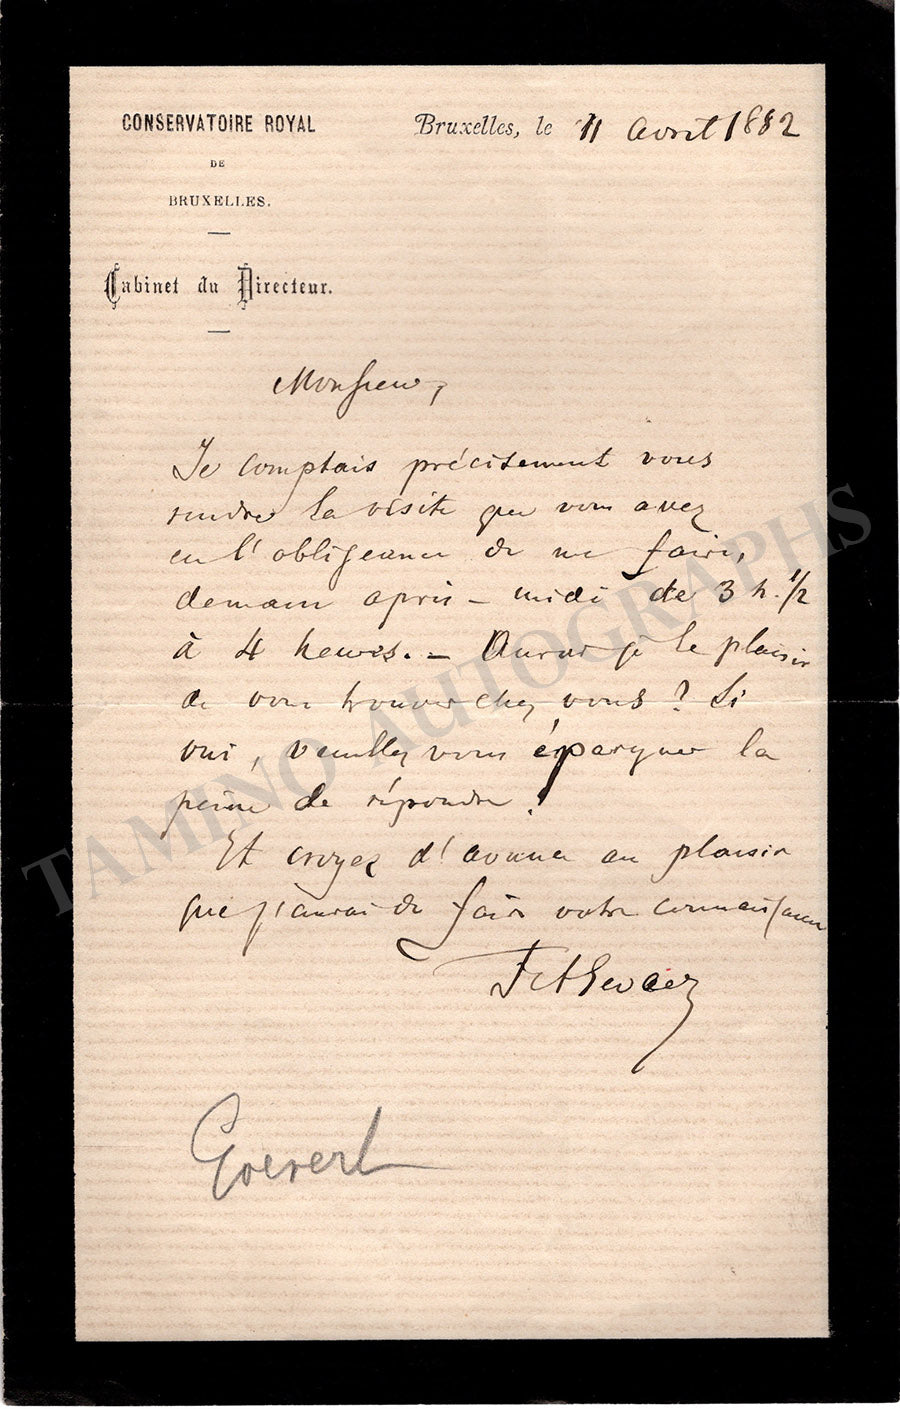 CONSERVATOIRE ROYAL
DE
BRUXELLES.
Cabinet du Directeur.
Bruxelles, le 11 avril 1882
Monsieur,
Je comptais précisement vous
rendre la visite que vous avez
eu l'obligeance de me faire,
demain après-midi de 3 h. 1/2
à 4 heures. – Aurai je le plaisir
de vous trouver chez vous? Si
oui, veuillez vous épargner la
peine de répondre!
Et croyez d'avance au plaisir
que j'aurai de faire votre connaissance
FAGevaert
Gevaert
TAMINO AUTOGRAPHS